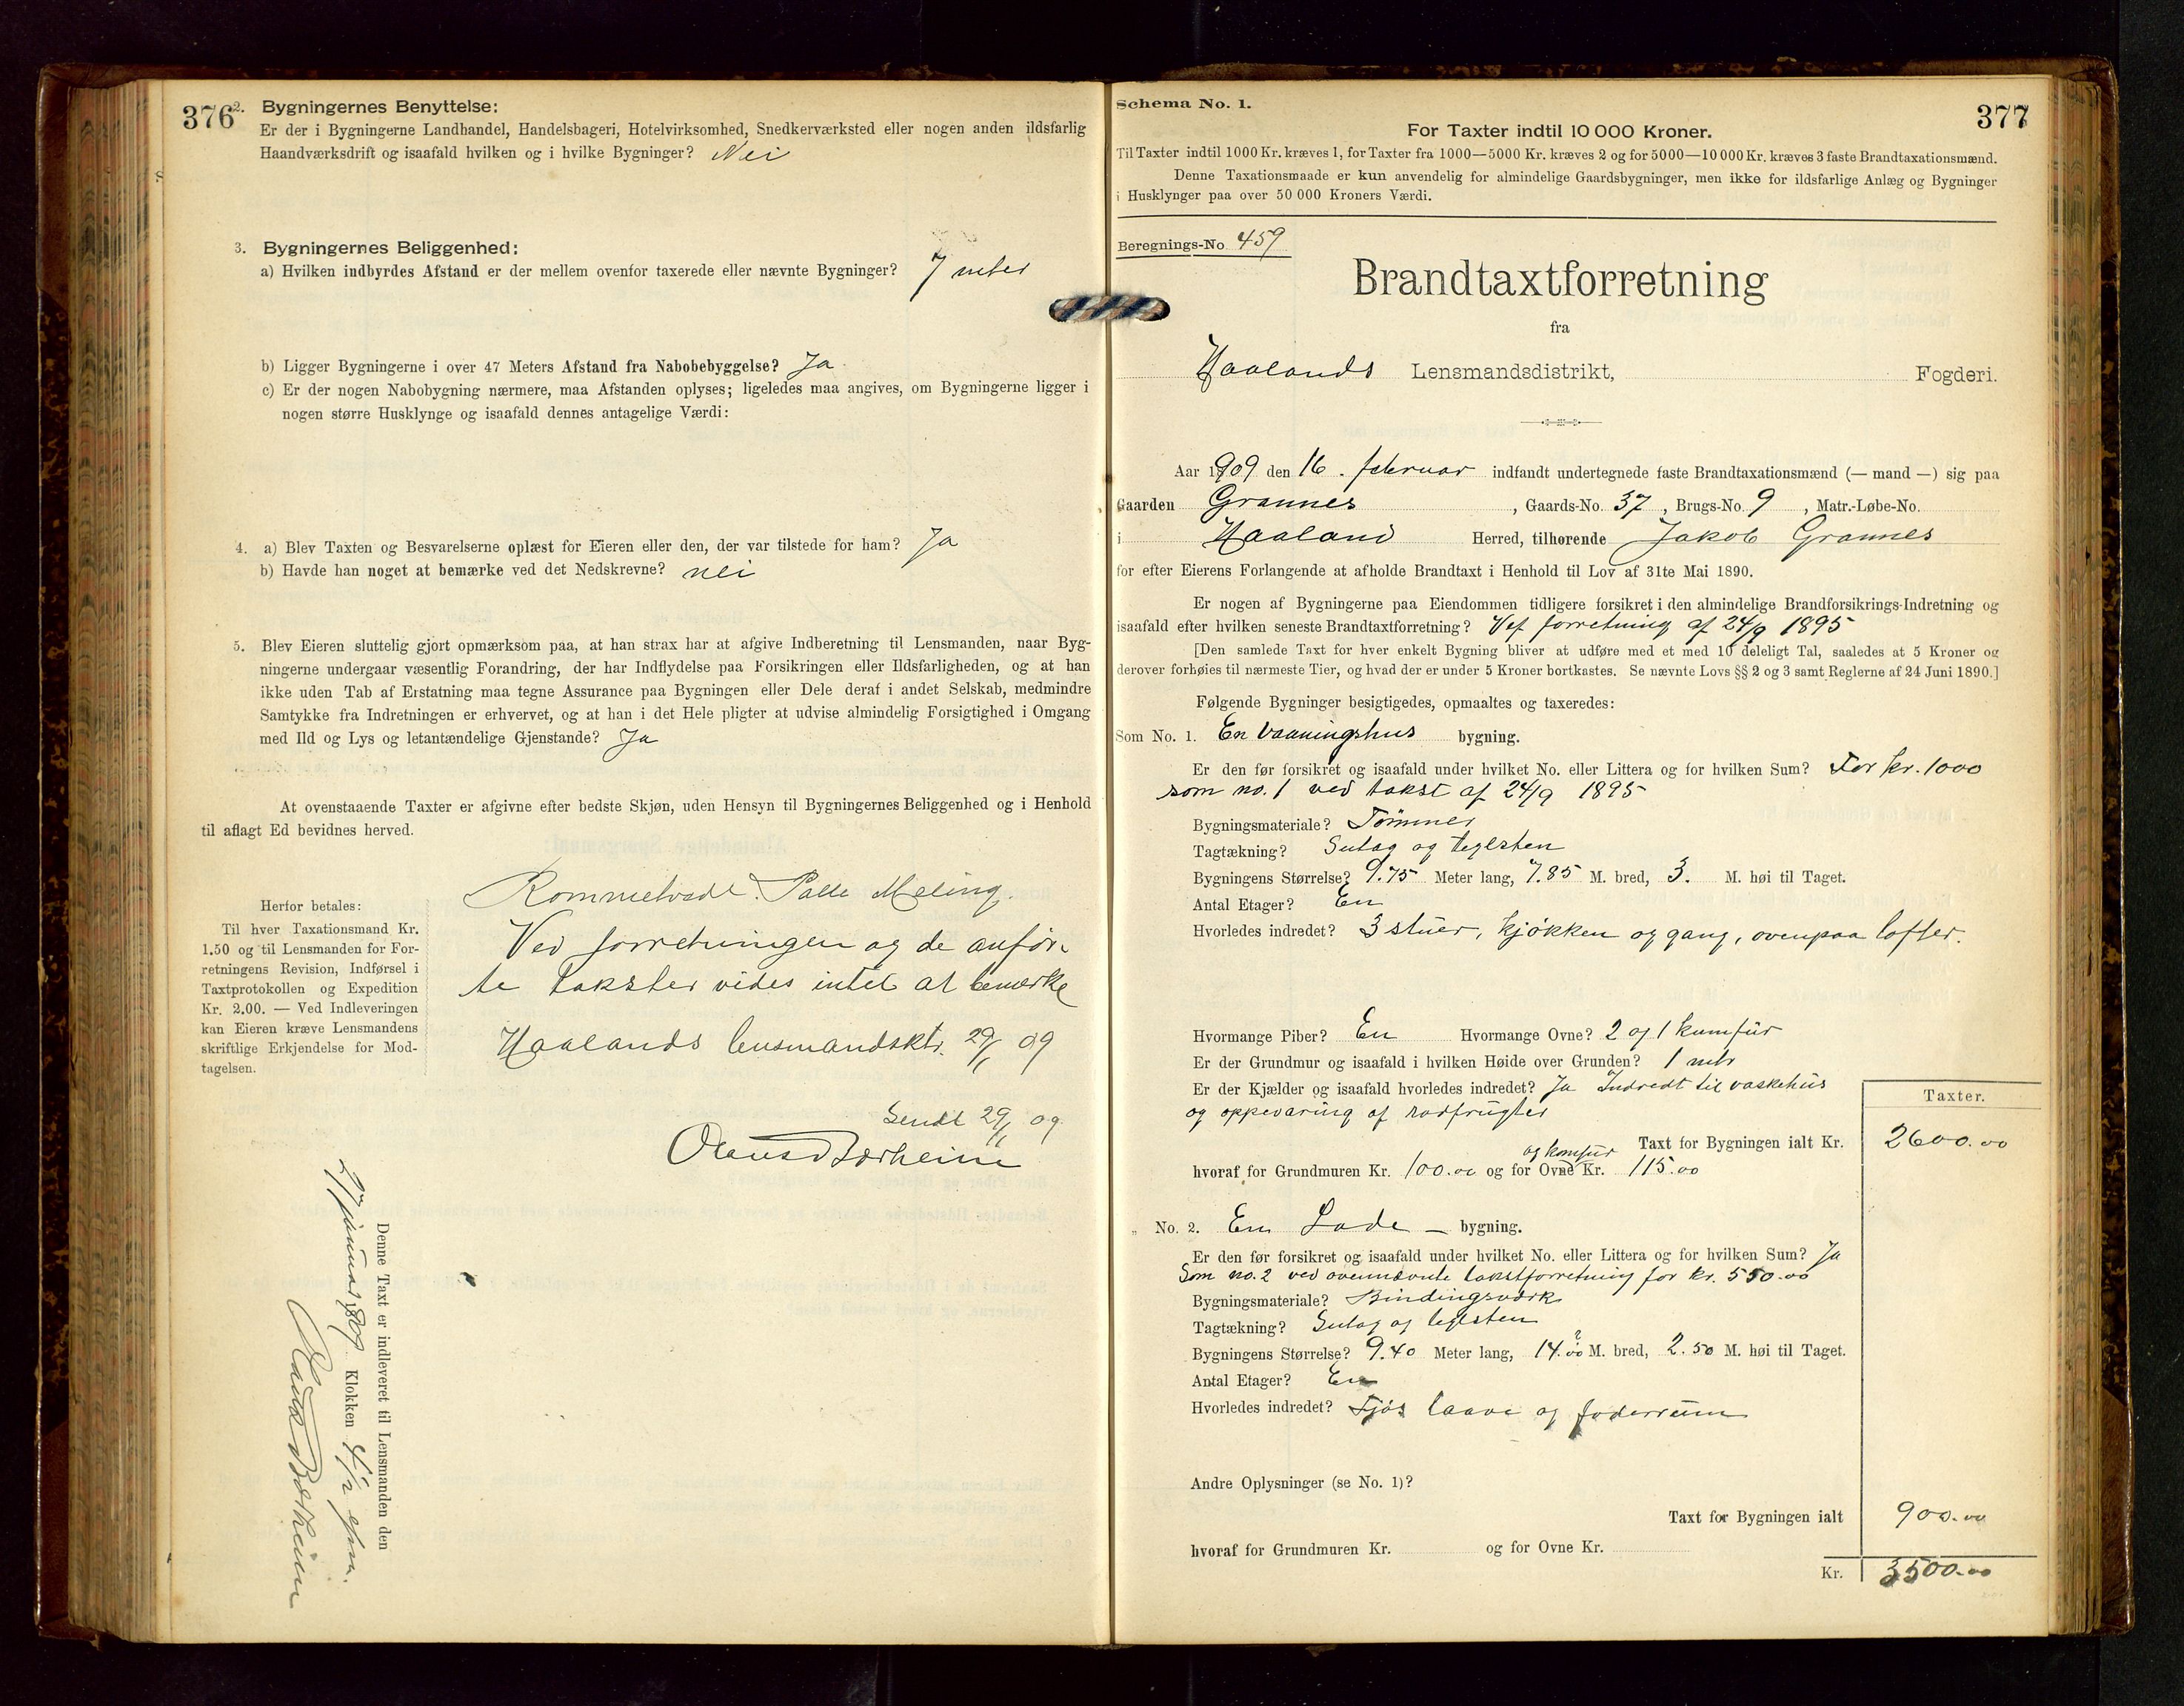 376
2. Bygningernes Benyttelse:
Er der i Bygningerne Landhandel, Handelsbageri, Hotelvirksomhed, Snedkerværksted eller nogen anden ildsfarlig
Haandværksdrift og isaafald hvilken og i hvilke Bygninger? Nei
3. Bygningernes Beliggenhed:
a) Hvilken indbyrdes Afstand er der mellem ovenfor taxerede eller nævnte Bygninger? 7 meter
b) Ligger Bygningerne i over 47 Meters Afstand fra Nabobebyggelse? Ja
c) Er der nogen Nabobygning nærmere, maa Afstanden oplyses; ligeledes maa angives, om Bygningerne ligger i
nogen større Husklynge og isaafald dennes antagelige Værdi:
4. a) Blev Taxten og Besvarelserne oplæst for Eieren eller den, der var tilstede for ham? Ja
b) Havde han noget at bemærke ved det Nedskrevne? nei
5. Blev Eieren sluttelig gjort opmærksom paa, at han strax har at afgive Indberetning til Lensmanden, naar Byg-
ningerne undergaar væsentlig Forandring, der har Indflydelse paa Forsikringen eller Ildsfarligheden, og at han
ikke uden Tab af Erstatning maa tegne Assurance paa Bygningen eller Dele deraf i andet Selskab, medmindre
Samtykke fra Indretningen er erhvervet, og at han i det Hele pligter at udvise almindelig Forsigtighed i Omgang
med Ild og Lys og letantændelige Gjenstande? Ja
At ovenstaaende Taxter er afgivne efter bedste Skjøn, uden Hensyn til Bygningernes Beliggenhed og i Henhold
til aflagt Ed bevidnes herved.
Rommetvedt. Palle Meling.
Ved forretningen og de anfør-
te takster vides intet at bemerke
Haalands lensmandsktr. 29/1 09
Sendt 29/1 09
Herfor betales:
Til hver Taxationsmand Kr.
1.50 og til Lensmanden for For-
retningens Revision, Indførsel i
Taxtprotokollen og Expedition
Kr. 2.00. — Ved Indleveringen
kan Eieren kræve Lensmandens
skriftlige Erkjendelse for Mod-
tagelsen.
Denne Taxt er indleveret til Lensmanden den
januar 1909 Klokken 4 1/2 efm.
Schema No. 1.
377
For Taxter indtil 10 000 Kroner.
Til Taxter indtil 1000 Kr. kræves 1, for Taxter fra 1000—5000 Kr. kræves 2 og for 5000—10 000 Kr. kræves 3 faste Brandtaxationsmænd.
Denne Taxationsmaade er kun anvendelig for almindelige Gaardsbygninger, men ikke for ildsfarlige Anlæg og Bygninger
i Husklynger paa over 50 000 Kroners Værdi.
Beregnings-No 459
Brandtaxtforretning
fra
Haalands Lensmandsdistrikt, Fogderi.
Aar 1909 den 16. februar indfandt undertegnede faste Brandtaxationsmænd (— mand —) sig paa
Gaarden Grannes, Gaards-No. 37, Brugs-No. 9, Matr.-Løbe-No.
i Haaland Herred, tilhørende Jakob Grannes
for efter Eierens Forlangende at afholde Brandtaxt i Henhold til Lov af 31te Mai 1890.
Er nogen af Bygningerne paa Eiendommen tidligere forsikret i den almindelige Brandforsikrings-Indretning og
isaafald efter hvilken seneste Brandtaxtforretning? Ved forretning af 24/9 1895
[Den samlede Taxt for hver enkelt Bygning bliver at udføre med et med 10 deleligt Tal, saaledes at 5 Kroner og
derover forhøies til nærmeste Tier, og hvad der er under 5 Kroner bortkastes. Se nævnte Lovs §§ 2 og 3 samt Reglerne af 24 Juni 1890.]
Følgende Bygninger besigtigedes, opmaaltes og taxeredes:
Som No. 1. En vaaningshus bygning.
Er den før forsikret og isaafald under hvilket No. eller Littera og for hvilken Sum? For kr. 1000
som no. 1 ved takst af 24/9 1895
Bygningsmateriale? Tømmer
Tagtækning? Sutag og teglsten
Bygningens Størrelse? 9.75 Meter lang, 7.85 M. bred, 3. M. høi til Taget.
Antal Etager? En
Hvorledes indredet? 3 stuer, kjøkken og gang, ovenpaa lofter.
Hvormange Piber? En Hvormange Ovne? 2 og 1 kumfur
Er der Grundmur og isaafald i hvilken Høide over Grunden? 1 mtr
Er der Kjælder og isaafald hvorledes indredet? Ja Indredt til vaskehus
og oppevaring af rodfrugter
Taxter.
Taxt for Bygningen ialt Kr. 2600.00
hvoraf for Grundmuren Kr. 100.00 og for Ovne og komfur Kr. 115.00
„ No. 2. En Lade — bygning.
Er den før forsikret og isaafald under hvilket No. eller Littera og for hvilken Sum? Ja
Som no. 2 ved ovennævnte takstforretning for kr. 550.00
Bygningsmateriale? Bindingsværk
Tagtækning? Sutag og teglsten
Bygningens Størrelse? 9.40 Meter lang, 14.00 ? M. bred, 2.50 M. høi til Taget.
Antal Etager? En
Hvorledes indredet? Fjøs laave og foderrum
Andre Oplysninger (se No. 1)?
Taxt for Bygningen ialt 900.00
hvoraf for Grundmuren Kr. og for Ovne Kr.
Kr. 3500.00